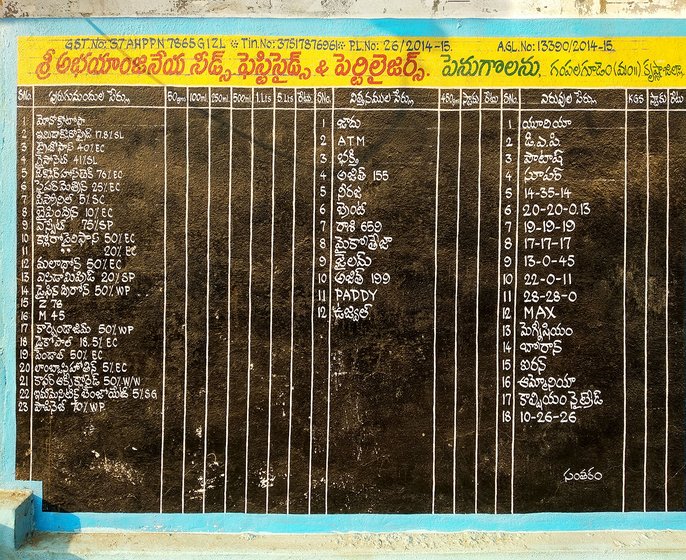 GST.No: 37AHPPN7865G1ZL * Tin.No: 37517876961 * P.L.No: 26/2014-15. A.G.L.No: 13390/2014-15.
శ్రీ అభయాంజనేయ సీడ్స్, ఫెస్టిసైడ్స్ & పెర్టిలైజర్స్. పెనుగొలను, గంపలగూడెం (మం॥) కృష్ణాజిల్లా.
S.No. పురుగుమందుల పేర్లు 50gms 100ml 250ml 500ml 1.Lts 5.Lts రేటు S.No. విత్తనముల పేర్లు 450gms స్టాకు రేటు S.No. ఎరువుల పేర్లు KGS స్టాకు రేటు
1 మోనోక్రొటోఫాస్ 1 జాదు 1 యూరియా
2 17.8%SL 2 ATM 2 డి.ఎ.పి.
3 40%EC 3 భక్తి 3 పొటాష్
4 41%SL 4 అజిత్ 155 4 సూపర్
5 76%EC 5 నీరజ 5 14-35-14
6 25%EC 6 6 20-20-0.13
7 5%SC 7 రాశి 659 7 19-19-19
8 10%EC 8 మైకోతేజా 8 17-17-17
9 75%SP 9 జైలమ్ 9 13-0-45
10 50%EC 10 అజిత్ 199 10 22-0-11
11 " " 20%EC 11 PADDY 11 28-28-0
12 మలాథాన్ 50%EC 12 ఉజ్వల్ 12 MAX
13 20%SP 13 మెగ్నీషియం
14 50%WP 14 బోరాన్
15 Z 78 15 ఐరన్
16 M 45 16 అమ్మోనియా
17 కార్బెండాజిమ్ 50%WP 17 కాల్షియం నైట్రేడ్
18 డైకోఫాల్ 18.5%EC 18 10-26-26
19 50%EC
20 5%EC
21 కాపర్ ఆక్సీక్లోరైడ్ 50%W/W
22 5%SG
23 70%WP
సంతకం